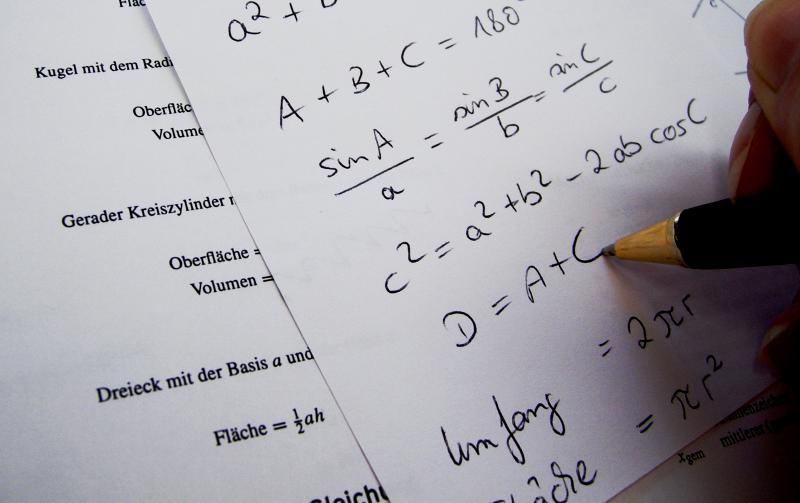 Kugel mit dem
Oberfläc
Volume
Gerader Kreiszylinder
Oberfläche =
Volumen =
Dreieck mit der Basis a und
Fläche = ½ah
a² +
A + B + C = 180
sinA/a = sinB/b = sinC/c
c² = a² + b² - 2ab cosC
D = A + C
= 2πr
Umfang
= πr²
x_gem mittlerer